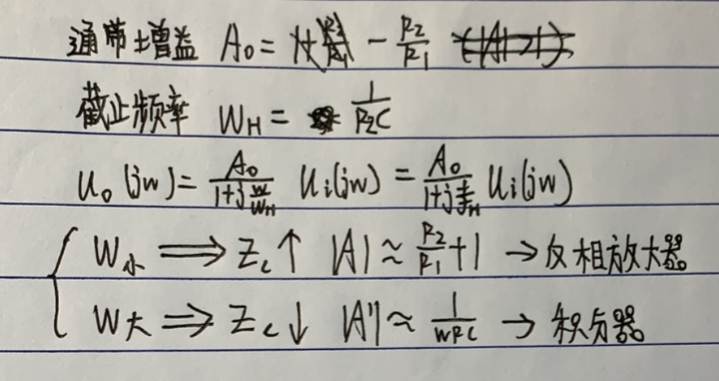 通带增益 A₀ = -R₂/R₁
截止频率 W_H = 1/(R₂C)
U₀(jw) = A₀/(1+j w/w_H) Uᵢ(jw) = A₀/(1+j f/f_H) Uᵢ(jw)
W小 ⟹ Z_c↑ |A| ≈ R₂/R₁+1 → 反相放大器
W大 ⟹ Z_c↓ |A'| ≈ 1/(wRC) → 积分器